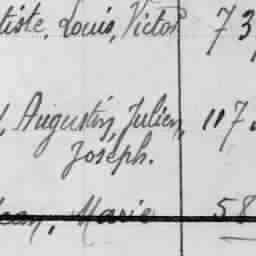 tiste, Louis, Victor 73
Augustin, Julien, 117.
Joseph.
Jean, Marie 58